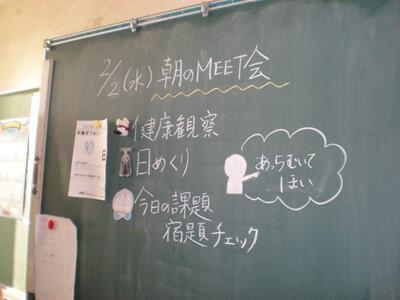 2/2(水) 朝のMEET会
健康観察
日めくり
あっちむいて
ほい
今日の課題
宿題チェック